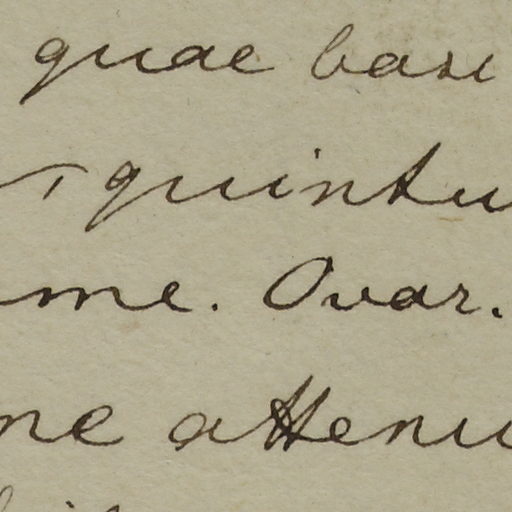 quae basi
quintu
me. Ovar.
ne attenu